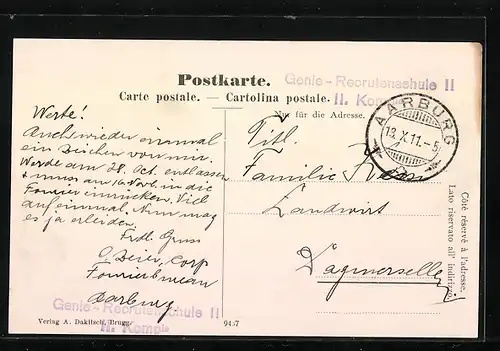 Postkarte.
Carte postale. — Cartolina postale.
Nur für die Adresse.
Genie-Recrutenschule II
II. Komp
AARBURG
13.X.11.-5
Werte!
Auch wieder einmal
ein von mir.
Werde am 28. Oct. entlassen
& muss am 16 Nov. in die
Fourier einrücken. Viel
auf einmal. Nun mag
es ja erleiden.
Frdl. Gruss
Beier, Corp
Aarburg
Titl.
Familie
Landwirt
Dagmersellen
Côté réservé à l'adresse.
Lato riservato all' indirizzo.
Genie-Recrutenschule II
II. Komp
Verlag A. Dakitsch, Brugg.
9457